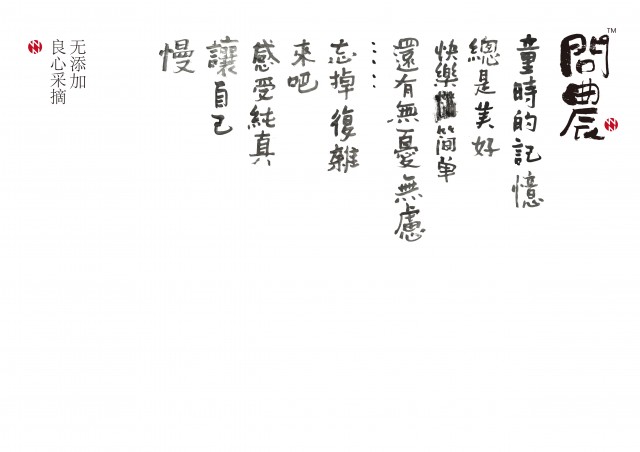 問農
™
童時的記憶
總是美好
快樂簡单
還有無憂無慮
……
忘掉復雜
來吧
感受純真
讓自己
慢
无添加
良心采摘